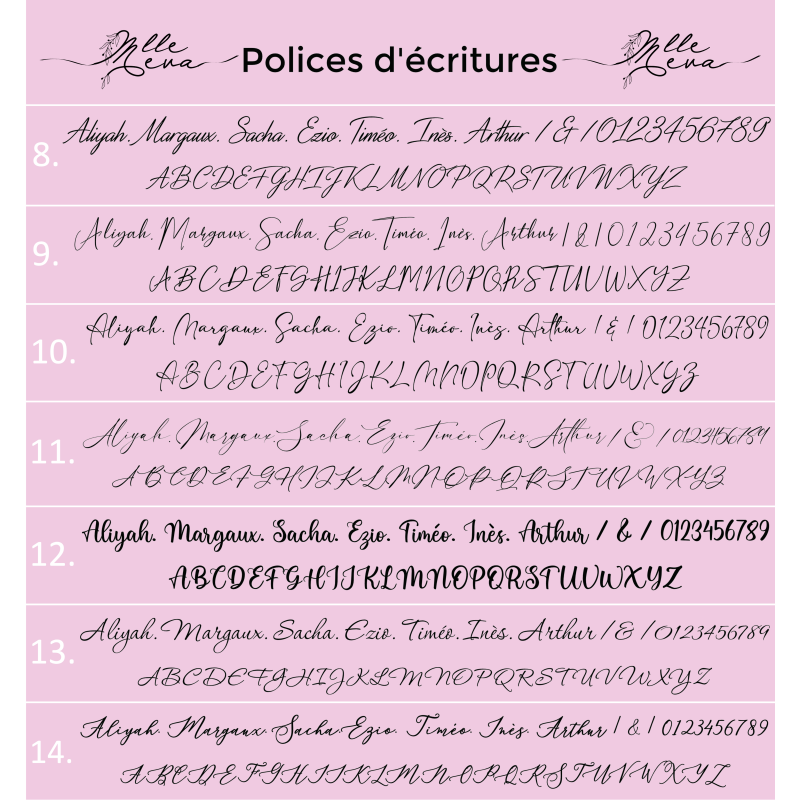 Mlle eva Polices d'écritures Mlle eva
8. Aliyah. Margaux. Sacha. Ezio. Timéo. Inès. Arthur / & / 0123456789
ABCDEFGHIJKLMNOPQRSTUVWXYZ
9. Aliyah. Margaux. Sacha. Ezio. Timéo. Inès. Arthur | & | 0123456789
ABCDEFGHIJKLMNOPQRSTUVWXYZ
10. Aliyah. Margaux. Sacha. Ezio. Timéo. Inès. Arthur / & / 0123456789
ABCDEFGHIJKLMNOPQRSTUVWXYZ
11. Aliyah. Margaux. Sacha. Ezio. Timéo. Inès. Arthur / & / 0123456789
ABCDEFGHIJKLMNOPQRSTUVWXYZ
12. Aliyah. Margaux. Sacha. Ezio. Timéo. Inès. Arthur / & / 0123456789
ABCDEFGHIJKLMNOPQRSTUVWXYZ
13. Aliyah. Margaux. Sacha. Ezio. Timéo. Inès. Arthur / & / 0123456789
ABCDEFGHIJKLMNOPQRSTUVWXYZ
14. Aliyah. Margaux. Sacha. Ezio. Timéo. Inès. Arthur | & | 0123456789
ABCDEFGHIJKLMNOPQRSTUVWXYZ